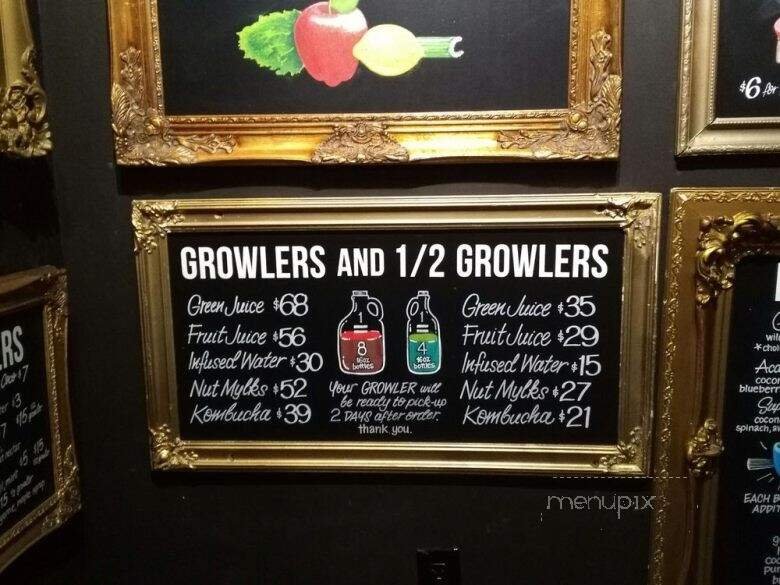 $6 for
GROWLERS AND 1/2 GROWLERS
Green Juice $68
Fruit Juice $56
Infused Water $30
Nut Mylks $52
Kombucha $39
1
8
16oz
bottles
1
4
16oz
bottles
Your GROWLER will
be ready to pick-up
2 DAYS after order.
thank you.
Green Juice $35
Fruit Juice $29
Infused Water $15
Nut Mylks $27
Kombucha $21
RS
coco
blueberr
spinach,
EACH B
ADDIT
menupix